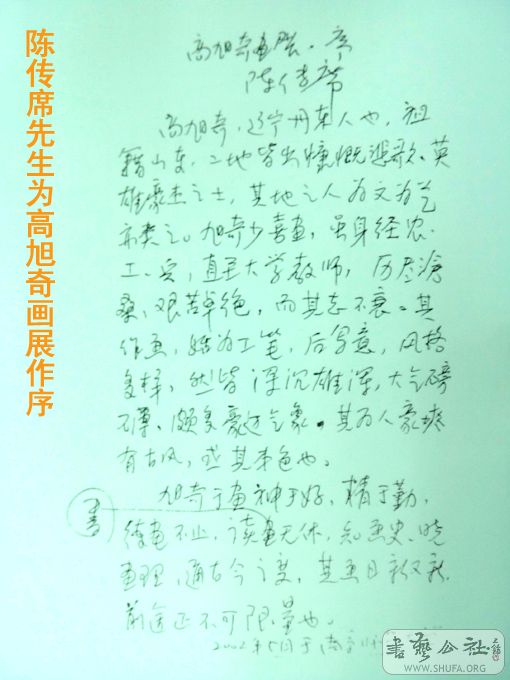 陈传席先生为高旭奇画展作序
高旭奇画展·序
陈传席
高旭奇,辽宁丹东人也,祖
籍山东,二地皆出慷慨悲歌、英
雄豪杰之士,其地之人为文为艺
亦类之。旭奇少喜画,虽身经农、
工、兵,直至大学教师,历尽沧
桑,艰苦卓绝,而其志不衰。其
作画,始为工笔,后写意,风格
多样,然皆深沉雄浑,大气磅
礴,颇多豪迈气象。其为人豪爽
有古风,或其本色也。
旭奇于画神于好,精于勤,
读画无休,知画史,晓
画理,通古今之变,其画日新又新,
前途正不可限量也。
2002年5月于南京
書藝公社
WWW.SHUFA.ORG